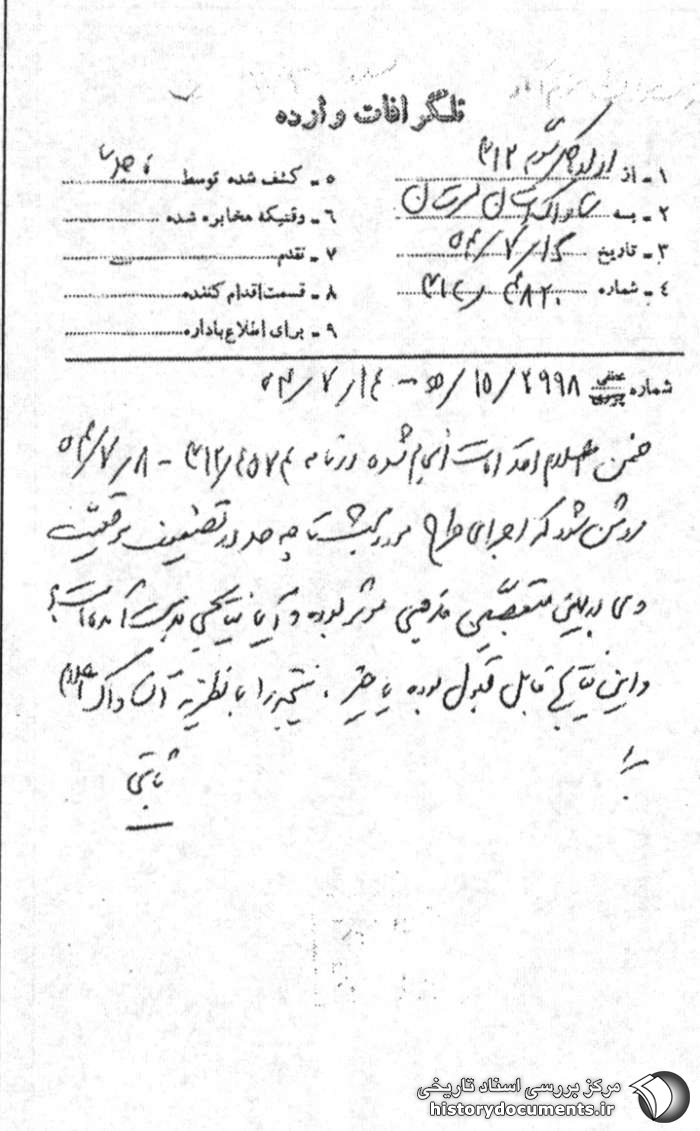 تلگرافات وارده
۱ ـ از اداره کل سوم ۳۱۲
۲ ـ به ساواک استان
۳ ـ تاریخ ۵۴/۷/۱۶
۴ ـ شماره ۴۸۲۰ / ۳۱۲
۵ ـ کشف شده توسط
۶ ـ وقتیکه مخابره شده
۷ ـ تقدم
۸ ـ قسمت اقدام کننده
۹ ـ برای اطلاع باداره
شماره ۲۹۹۸ / ۱۵ / ه‍ ـ ۵۴/۷/۱۴
ضمن اعلام اقدامات انجام شده در نامه ـ ۵۴/۷/۸
روشن شود که اجرای طرح مورد بحث تا چه حد در تضعیف موقعیت
وی در بین متعصبین مذهبی موثر بوده و آیا نتایجی بدست آمده است؟
و این نتایج قابل قبول بوده یا خیر. نتیجه را با نظریه آن ساواک اعلام
ثابتی
مرکز بررسی اسناد تاریخی
historydocuments.ir